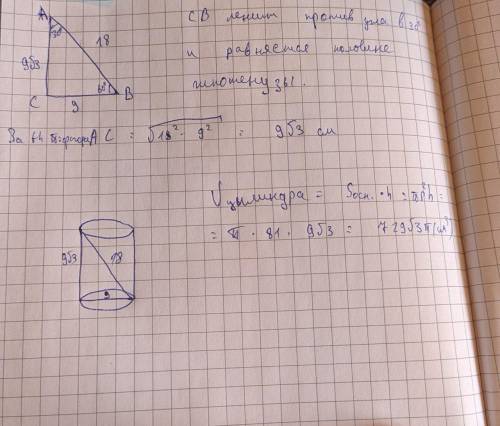 A
30
18
9√3
60°
C
9
B
CB лежит против угла в 30
и равняется половине
гипотенузы.
За th Пифагора AC = √18² - 9² = 9√3 см
9√3
18
9
Vцилиндра = Sосн. · h = πR²h =
= π · 81 · 9√3 = 729√3π (см³)